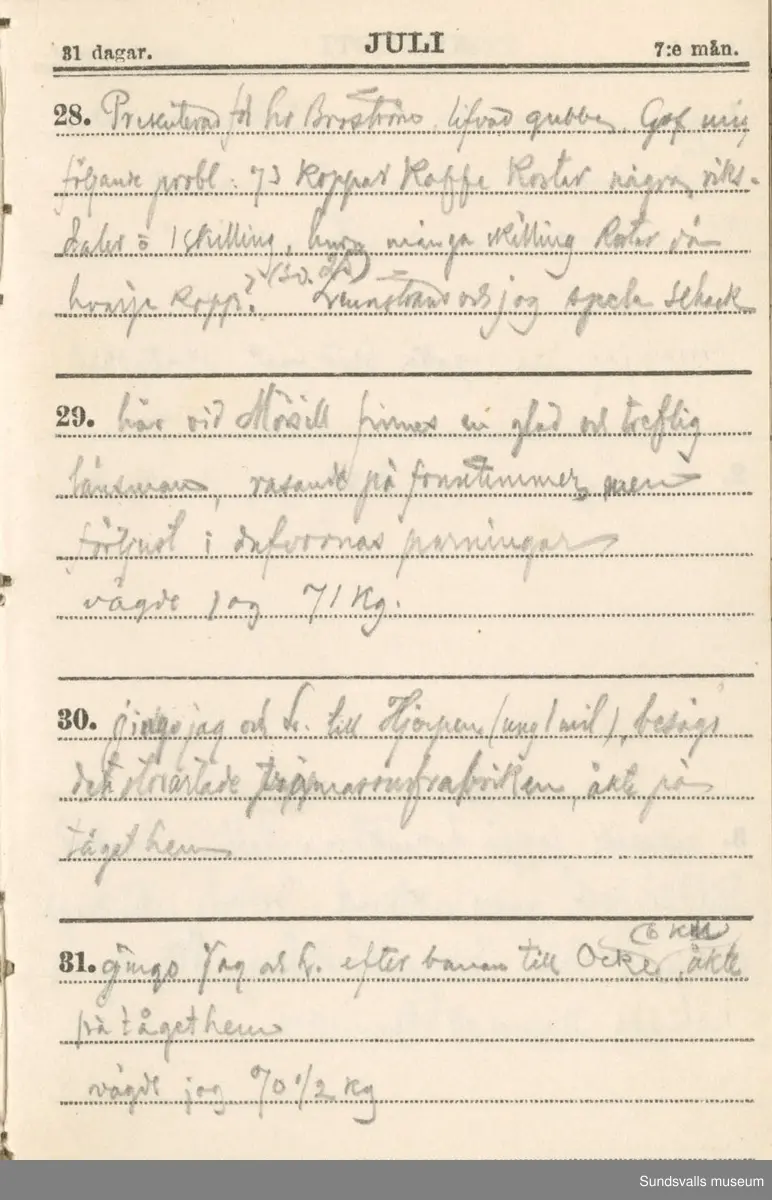 31 dagar. JULI 7:e mån.
28. Presenterad för hr Broström, lifvad gubbe. Gaf mig
följande probl: 73 koppar kaffe kostar några riks-
daler o 1 skilling, huru många skilling kostar då
hvarje kopp? och jag spela schack
29. här vid Mörsill finnes en glad och treflig
länsman, rasande på fruntimmer, men
förtjust i parningar
vägde jag 71 kg.
30. gingo jag och L. till Hjerpen (ung 1 mil), besågo
det storartade trämassefabriken, åkte på
tåget hem
31. gingo jag och L. efter banan till Ocke, åkte
på tåget hem
vägde jag 70 1/2 kg
Sundsvalls museum